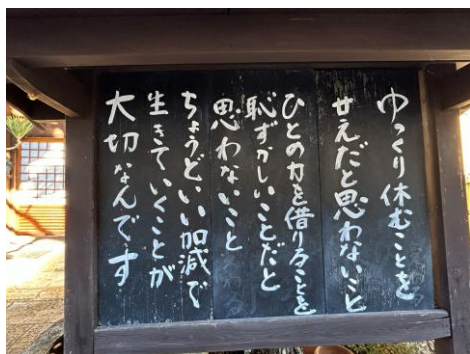 ゆっくり休むことを
甘えだと思わないこと
ひとの力を借りることを
恥ずかしいことだと
思わないこと
ちょうどいい加減で
生きていくことが
大切なんです